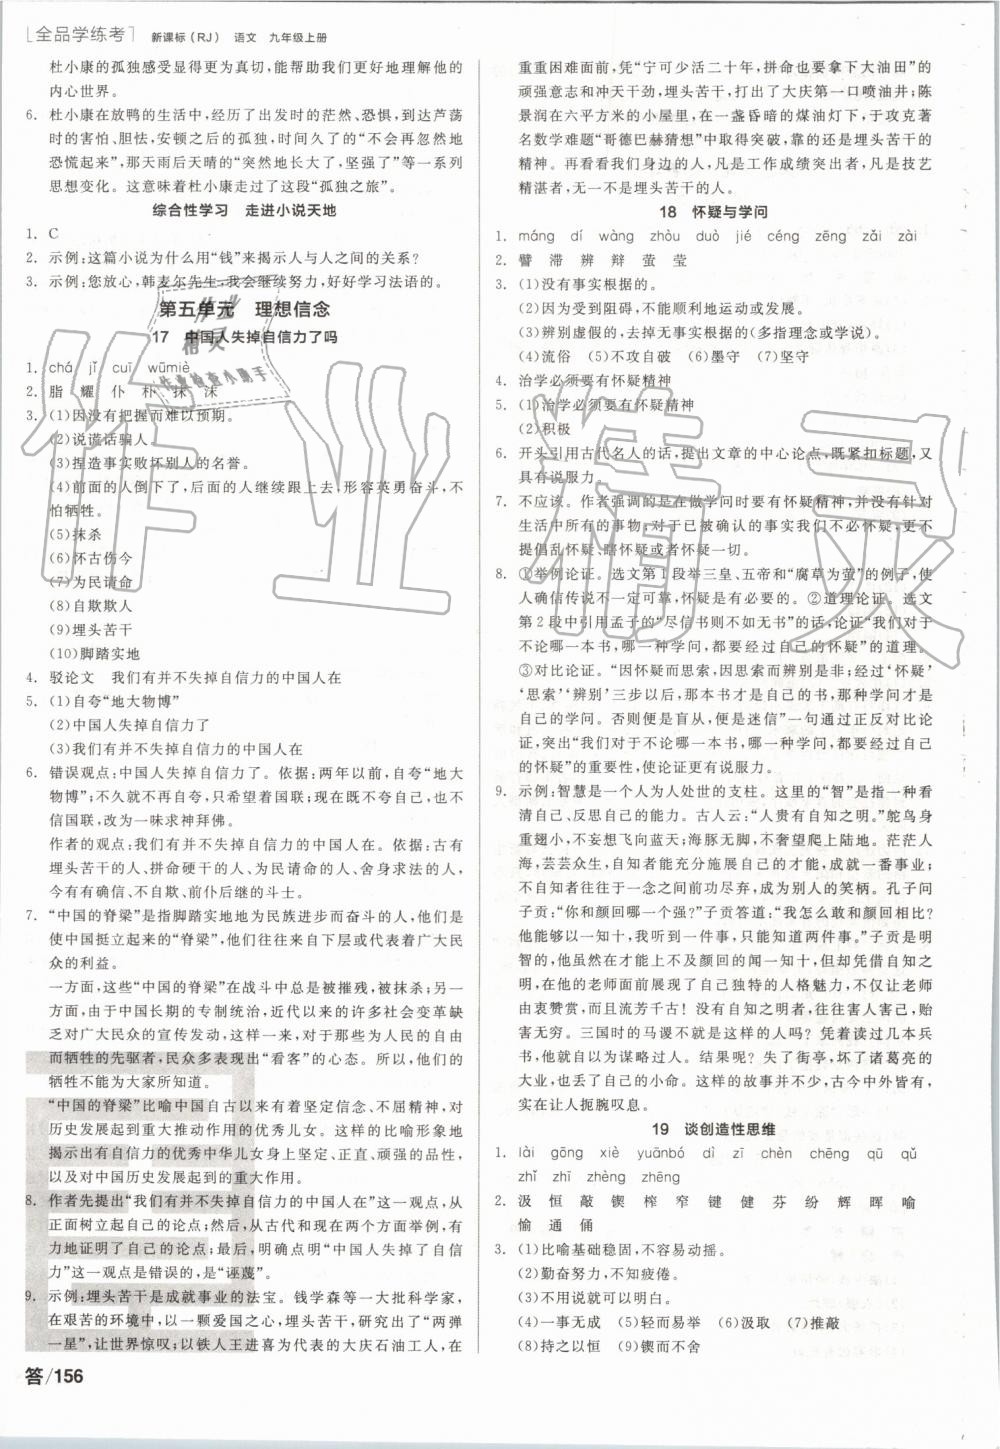 全品学练考 新课标（RJ） 语文 九年级上册
杜小康的孤独感受显得更为真切,能帮助我们更好地理解他的
内心世界。
6. 杜小康在放鸭的生活中,经历了出发时的茫然、恐惧,到达芦荡
时的害怕、胆怯,安顿之后的孤独,时间久了的“不会再忽然地
恐慌起来”,那天雨后天晴的“突然地长大了,坚强了”等一系列
思想变化。这意味着杜小康走过了这段“孤独之旅”。
综合性学习 走进小说天地
1. C
2. 示例:这篇小说为什么用“钱”来揭示人与人之间的关系?
3. 示例:您放心,韩麦尔先生,我会继续努力,好好学习法语的。
第五单元 理想信念
17 中国人失掉自信力了吗
1. chá jǐ cuī wūmiè
2. 脂 耀 仆 朴 抹 沫
3. (1)因没有把握而难以预期。
(2)说谎话骗人。
(3)捏造事实败坏别人的名誉。
(4)前面的人倒下了,后面的人继续跟上去,形容英勇奋斗,不
怕牺牲。
(5)抹杀
(6)怀古伤今
(7)为民请命
(8)自欺欺人
(9)埋头苦干
(10)脚踏实地
4. 驳论文 我们有并不失掉自信力的中国人在
5. (1)自夸“地大物博”
(2)中国人失掉自信力了
(3)我们有并不失掉自信力的中国人在
6. 错误观点:中国人失掉自信力了。依据:两年以前,自夸“地大
物博”;不久就不再自夸,只希望着国联;现在既不夸自己,也不
信国联,改为一味求神拜佛。
作者的观点:我们有并不失掉自信力的中国人在。依据:古有
埋头苦干的人、拼命硬干的人、为民请命的人、舍身求法的人,
今有有确信、不自欺、前仆后继的斗士。
7. “中国的脊梁”是指脚踏实地地为民族进步而奋斗的人,他们是
使中国挺立起来的“脊梁”,他们往往来自下层或代表着广大民
众的利益。
一方面,这些“中国的脊梁”在战斗中总是被摧残,被抹杀;另一
方面,由于中国长期的专制统治,近代以来的许多社会变革缺
乏对广大民众的宣传发动,这样一来,对于那些为人民的自由
而牺牲的先驱者,民众多表现出“看客”的心态。所以,他们的
牺牲不能为大家所知道。
“中国的脊梁”比喻中国自古以来有着坚定信念、不屈精神,对
历史发展起着重大推动作用的优秀儿女。作者用比喻形象地
揭示出有自信力的优秀中华儿女身上坚定、正直、顽强的品性,
以及对中国历史发展起到的重大作用。
8. 作者先提出“我们有并不失掉自信力的中国人在”这一观点,从
正面树立起自己的论点;然后,从古代和现在两个方面举例,有
力地证明了自己的论点;最后,明确点明“中国人失掉了自信
力”这一观点是错误的,是“诬蔑”。
9. 示例:埋头苦干是成就事业的法宝。钱学森等一大批科学家,
在艰苦的环境中,以一颗颗爱国之心,刻苦研究,研究出了“两弹
一星”,让世界惊叹;以铁人王进喜为代表的大庆石油工人,在
答/156
重重困难面前,凭“宁可少活二十年,拼命也要拿下大油田”的
顽强意志和冲天干劲,埋头苦干,打出了大庆第一口喷油井;陈
景润在六平方米的小屋里,在一盏昏暗的煤油灯下,于攻克著
名数学难题“哥德巴赫猜想”中取得突破,靠的还是埋头苦干的
精神。再看看我们身边的人,凡是工作成绩突出者,凡是技艺
精湛者,无一不是埋头苦干的人。
18 怀疑与学问
1. máng dí wàng zhòu duò jié céng zēng zǎi zài
2. 譬 滞 辨 辩 萤 莹
3. (1)没有事实根据的。
(2)因为受到阻碍,不能顺利地进行或发展。
(3)辨别虚假的、去掉无事实根据的(多指理念或学说)。
(4)流俗 (5)不攻自破 (6)墨守 (7)坚守
4. 治学必须要有怀疑精神
5. (1)治学必须要有怀疑精神
(2)积极
6. 开头引用古代名人的话,提出文章的中心论点,既紧扣标题,又
具有说服力。
7. 不应该。作者强调的是在做学问时要有怀疑精神,并没有针对
生活中所有的事物;对于已被确认的事实我们不必怀疑,更不
提倡乱怀疑、瞎怀疑或者怀疑一切。
8. ①举例论证。选文第1段举三皇、五帝和“腐草为萤”的例子,使
人确信传说不一定可靠,怀疑是有必要的。②道理论证。选文
第2段中引用孟子的“尽信书则不如无书”的话,论证“我们对
于不论哪一本书,哪一种学问,都要经过自己的怀疑”的观点。
③对比论证。“因怀疑而思索,因思索而辨别是非;经过‘怀疑’
‘思索’‘辨别’三步以后,那本书才是自己的书,那种学问才是
自己的学问。否则便是盲从,便是迷信”一句通过正反对比论
证,突出“我们对于不论哪一本书,哪一种学问,都要经过自己
的怀疑”的重要性,使论证更有说服力。
9. 示例:智慧是一个人为人处世的支柱。这里的“智”是指一种看
清自己、反思自己的能力。古人云:“人贵有自知之明。”鸵鸟身
重翅小,不妄想飞向蓝天;海豚无脚,不奢望爬上陆地。茫茫人
海,芸芸众生,自知者能充分施展自己的才能,成就一番事业;
不自知者往往在于一念之间前功尽弃,成为别人的笑柄。孔子问
子贡:“你和颜回哪一个强?”子贡答道:“我怎么敢和颜回相比?
他能够以一知十,我听到一件事,只能知道两件事。”子贡是明
智的,他虽然在能力上远不及颜回的闻一知十,但却有自知之
明,在他的言语中展现了自己独特的人格魅力,不仅让老师
由衷赞赏,而且流芳千古!没有自知之明者,往往害人害己,贻
害无穷。三国时的马谡不就是这样的人吗?凭着读过几本兵
书,他就自以为谋略过人。结果呢?失了街亭,坏了诸葛亮的
大业,也丢了自己的小命。这样的故事并不少,古今中外皆有,
实在让人扼腕叹息。
19 谈创造性思维
1. lài gōng xiè yuānbó dì zī chèn qū qǔ
zhǐ zhī zhèng zhēng
2. 汲 恒 敲 锲 榨 窄 键 健 芬 纷 辉 晖 喻
愉 通 俑
3. (1)比喻基础稳固,不容易动摇。
(2)勤奋努力,不知疲倦。
(3)不用说就可以明白。
(4)一事无成 (5)轻而易举 (6)汲取 (7)推敲
(8)持之以恒 (9)锲而不舍